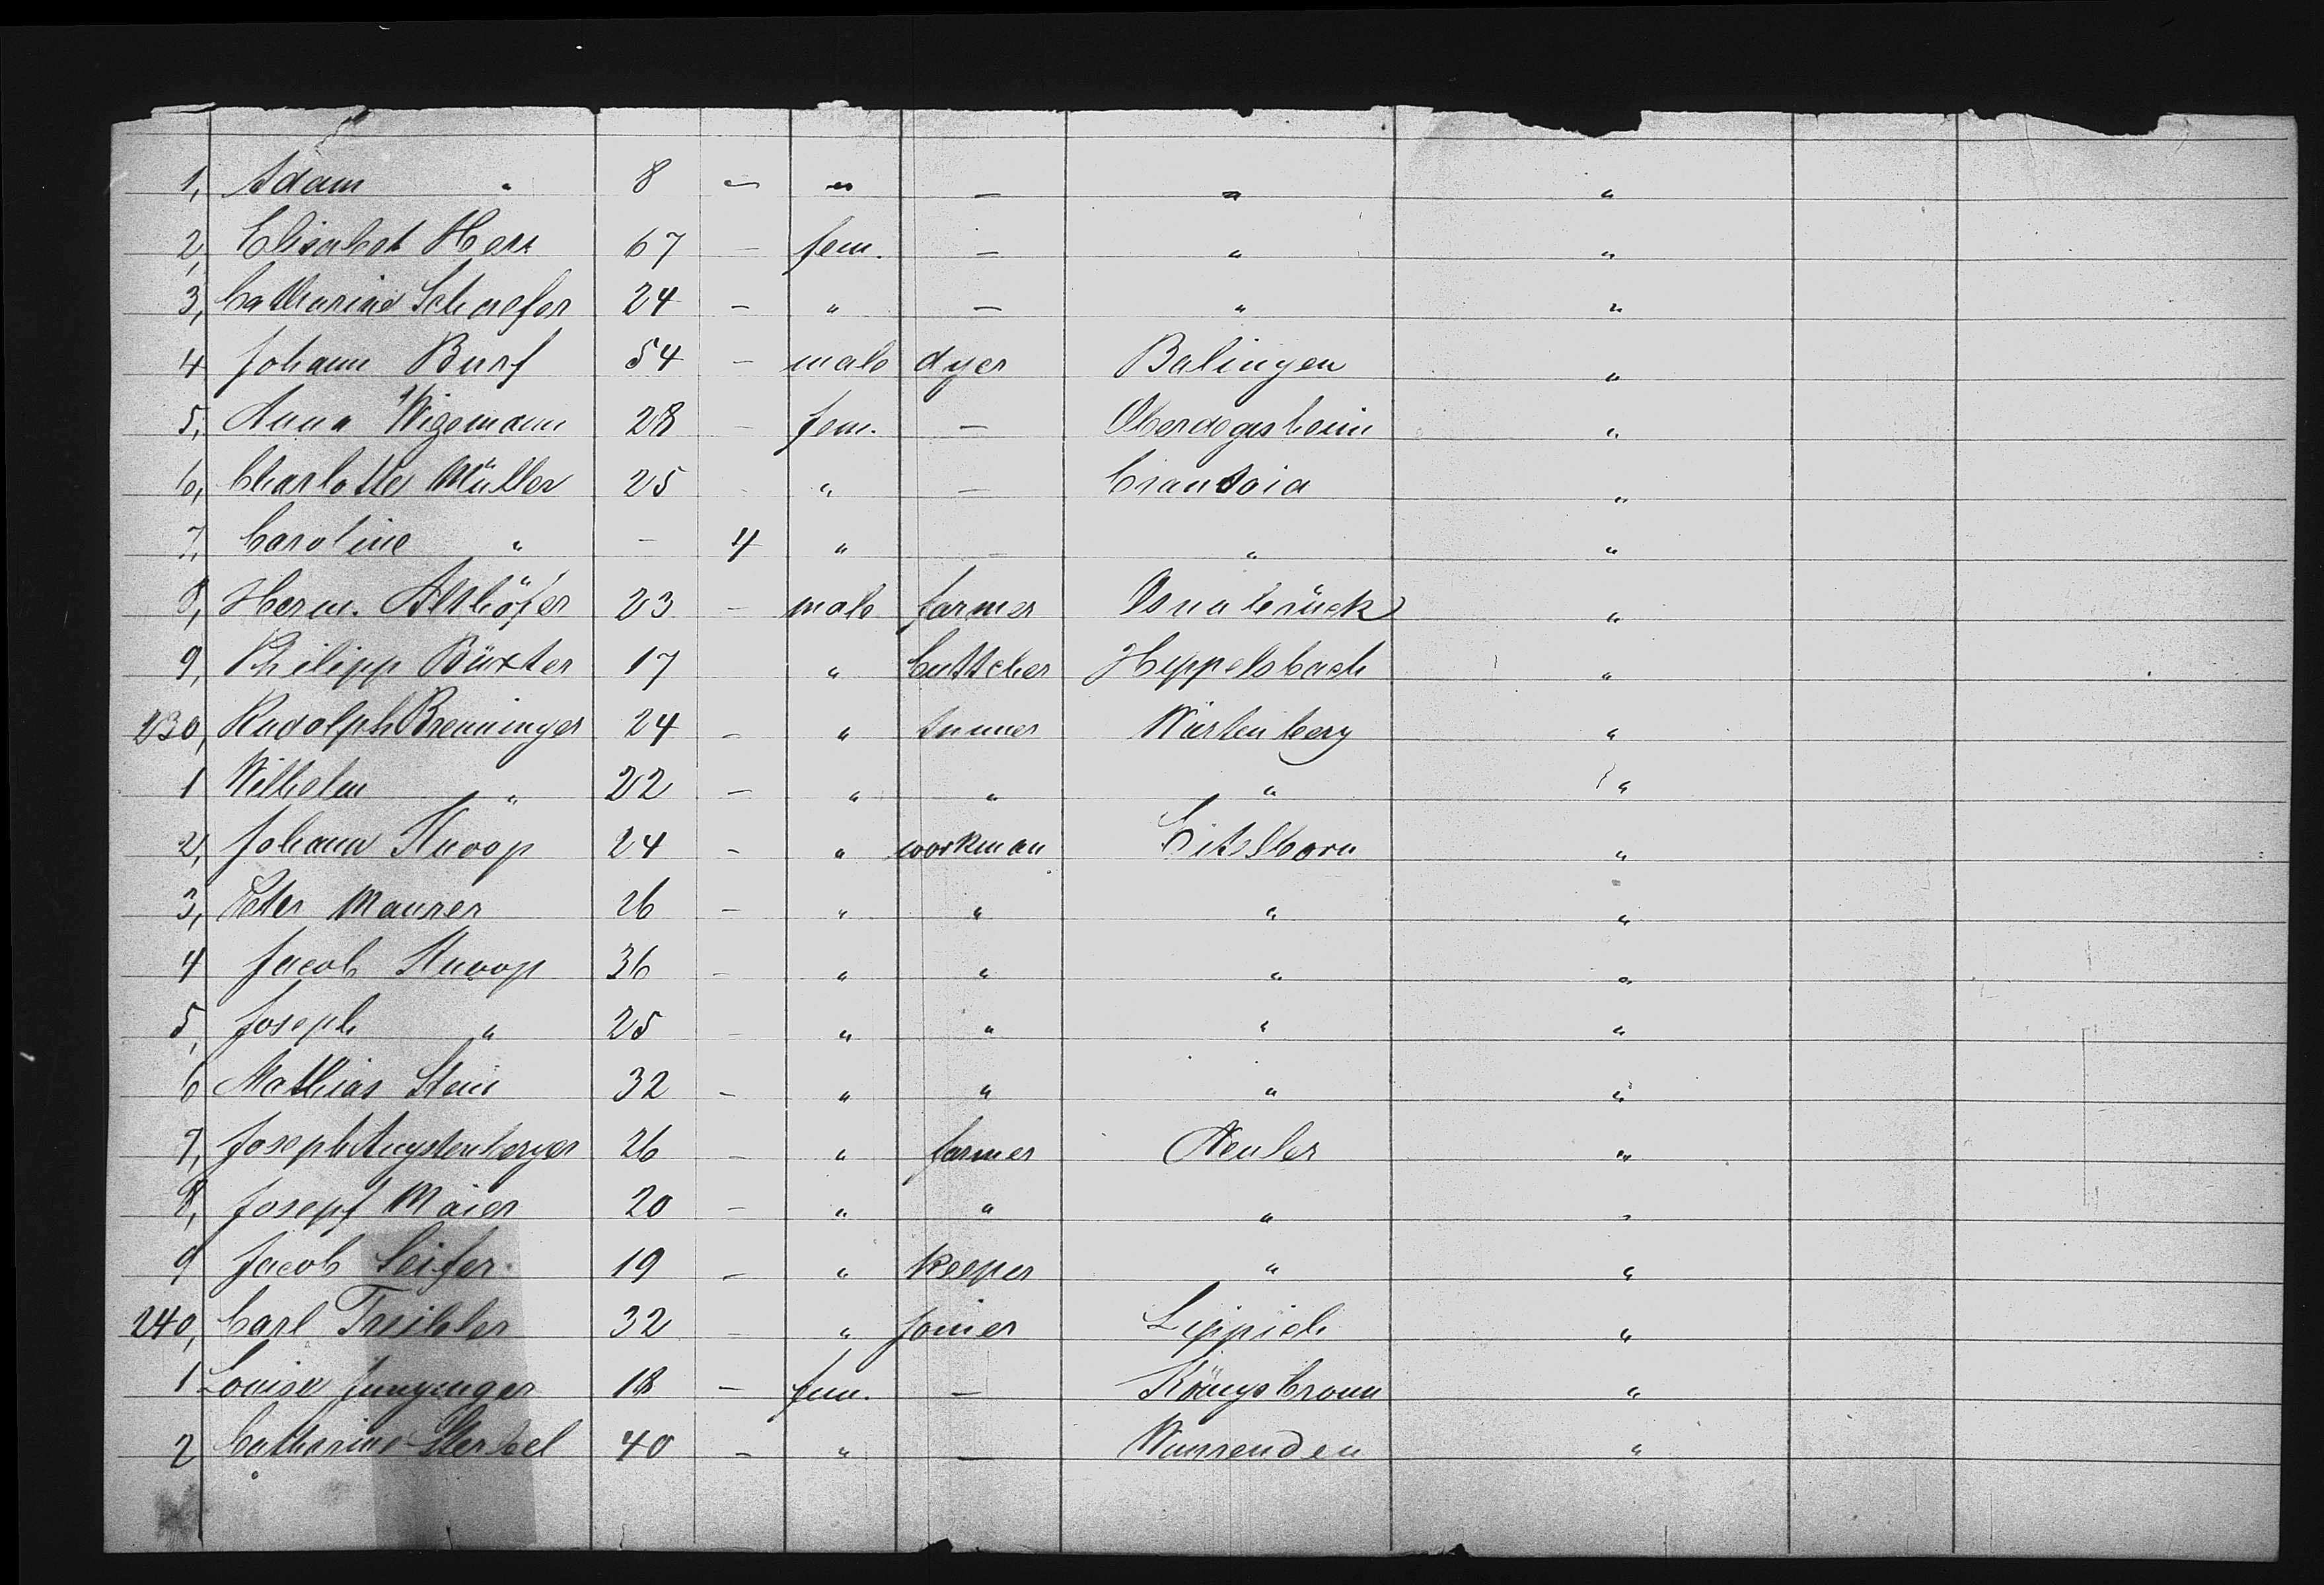 1, Adam " 8 - " - " "
2, Elisabet Herr 67 - fem. - " "
3, Catharine Schaefer 24 - " - " "
4 Johann Burf 54 - male dyer Balingen "
5, Anna Wigemann 28 - fem. - Oberdogisheim "
6, Charlotte Müller 25 - " - "
7, Caroline " - 4 " - " "
8, Herm. Althöfer 23 - male farmer Osnabrück "
9, Philipp Büxter 17 " buttcher Heppelsbach "
230, Rudolph Breuninger 24 - " tanner Würtenberg "
1 Wilhelm " 22 - " " " "
2, Johann Knoop 24 - " workman Eitelborn "
3, Peter Maurer 26 - " " " "
4 Jacob Knoop 36 - " " " "
5, Joseph " 25 - " " " "
6 Mathias Stein 32 - " " " "
7, Joseph Angstenberger 26 - " farmer Neuler "
8, Josepf Maier 20 - " " " "
9 Jacob Seifer 19 - " keeper " "
240, Carl Treibler 32 - " joiner Lippich "
1 Louise Junginger 18 - fem. - Köngsbronn "
2 Catharine Sterkel 40 - " - "